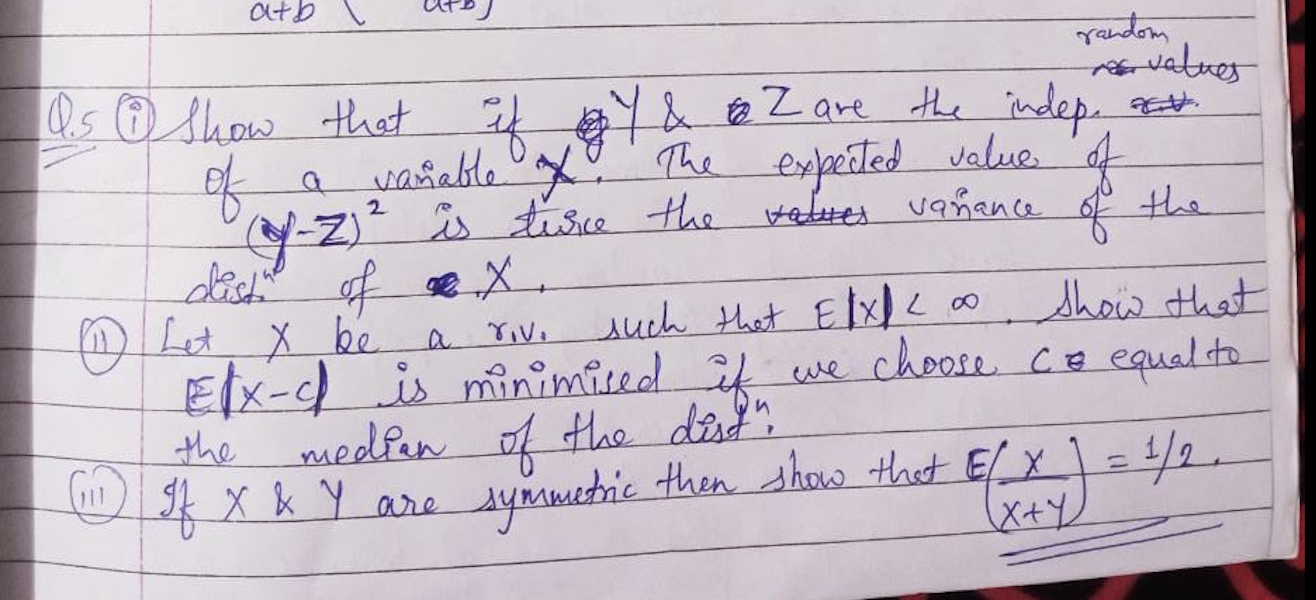 a+b ( a+b)
random
values
Q.5 (i) Show that if Y & Z are the indep.
of a variable X. The expected value of
(Y-Z)² is twice the values variance of the
distⁿ of X.
(ii) Let X be a r.v. such that E|X| < ∞. Show that
E|X-c| is minimised if we choose c equal to
the median of the distⁿ.
(iii) If X & Y are symmetric then show that E(X/(X+Y)) = 1/2.